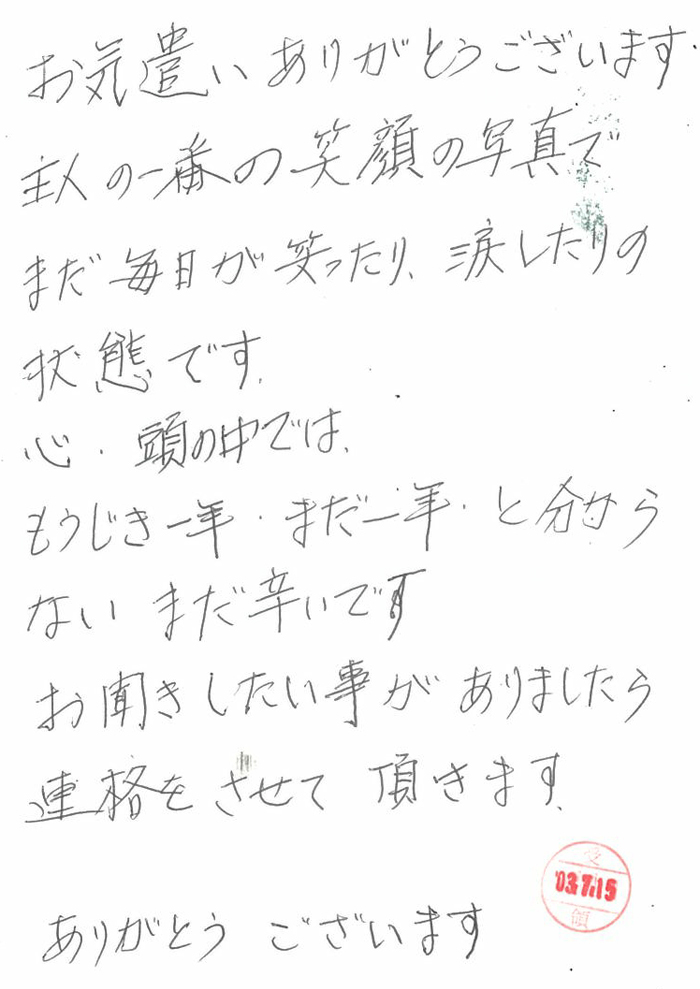 お気遣いありがとうございます.
主人の一番の笑顔の写真で
まだ毎日が笑ったり、涙したりの
状態です.
心・頭の中では、
もうじき一年・まだ一年・と分から
ない まだ辛いです
お聞きしたい事がありましたら
連格をさせて頂きます.
受
'03.7.15
領
ありがとうございます